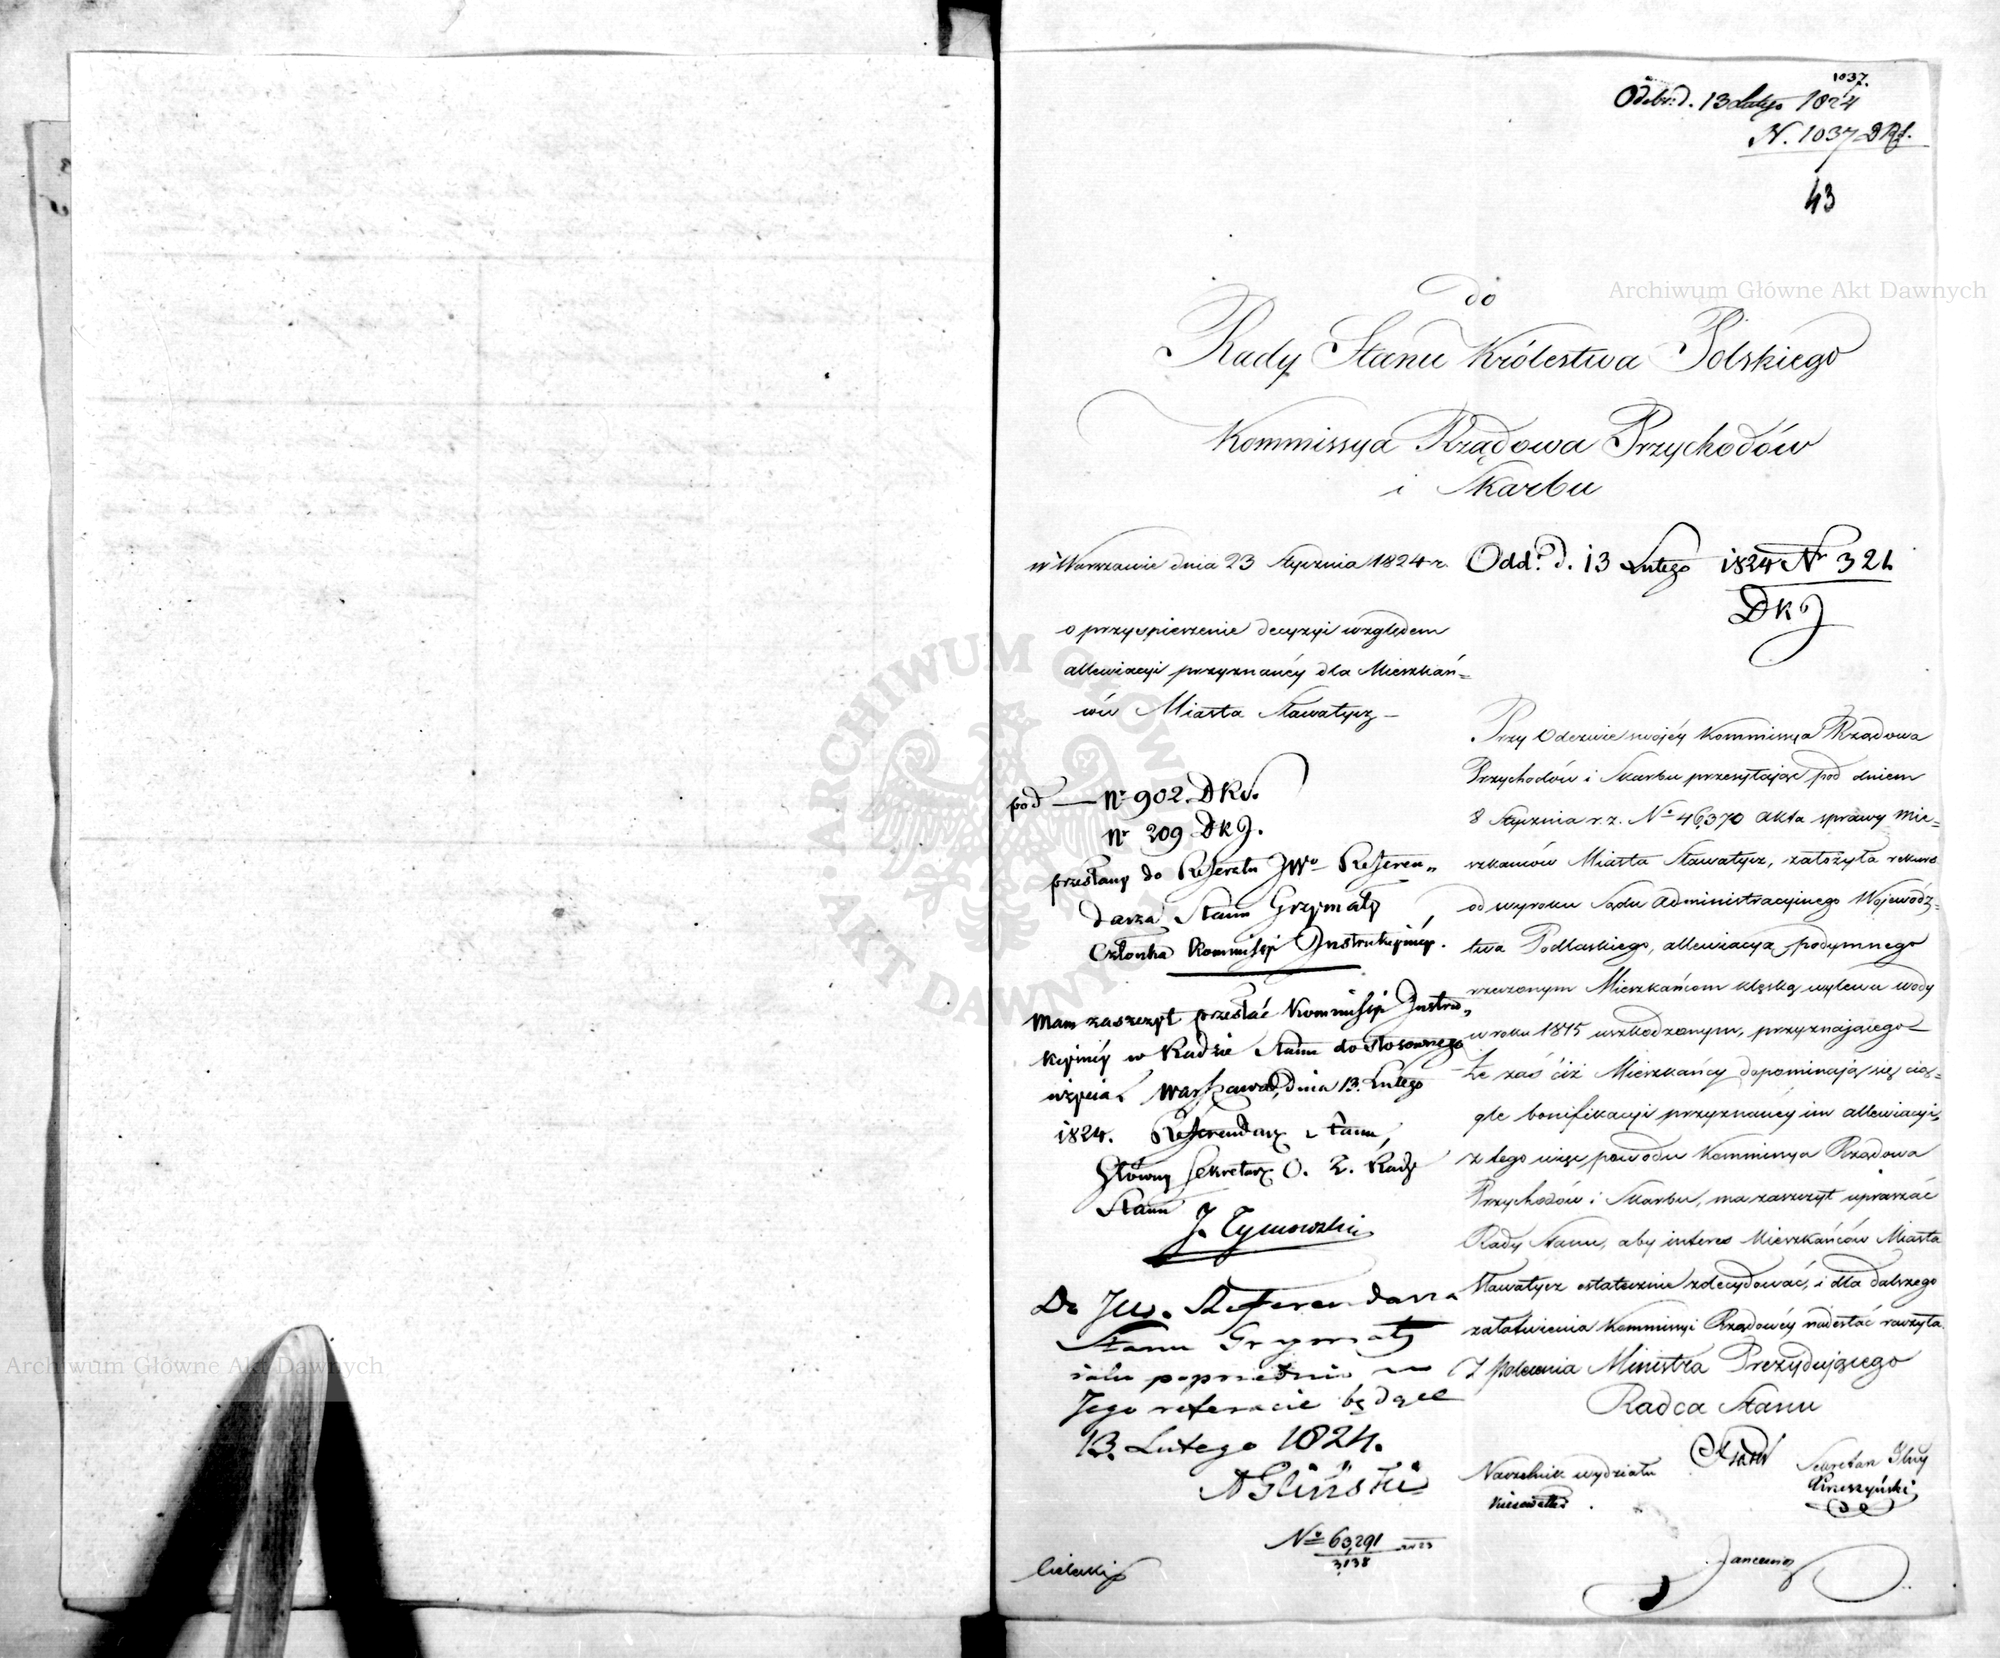 1037.
Odebr: d. 13 Lutego 1824
N. 1037 DRS.
43
do
Rady Stanu Królestwa Polskiego
Kommissya Rządowa Przychodów
i Skarbu
w Warszawie dnia 23 Stycznia 1824 r.
Odd: d. 13 Lutego 1824 Nr 321
DKJ
o przyspieszenie decyzyi względem
allewiacyi przyznanéy dla Mieszkań=
ców Miasta Sławatycz –
pod — Nr 902. DKs.
Nr 209 DKJ.
przesłany do Referatu JWo Referen„
darza Stanu Grzymały,
Członka Kommissyi Instrukcyjnéy.
Mam zaszczyt przesłać Kommissyi Instru„
kcyjnéy w Radzie Stanu do stosownego
użycia. Warszawa, dnia 13. Lutego
1824. Referendarz Stanu,
Główny Sekretarz O. Z. Rady
Stanu
J. Tymowski
Do JW. Referendarza
Stanu Grzymały
jako poprzednio w
Jego referacie będące
13. Lutego 1824.
A Gliński
No 63,291
3138
Przy Odezwie swojéy Kommissya Rządowa
Przychodów i Skarbu przesyłając pod dniem
8 Stycznia r. z. No 46,370 Akta sprawy Mie=
szkańców Miasta Sławatycz, założyła rekurs
od wyroku Sądu Administracyjnego Wojewódz=
twa Podlaskiego, allewiacyą podymnego
rzeczonym Mieszkańcom klęską wylewu wody
w roku 1815 uszkodzonym, przyznającego –
Że zaś ciż Mieszkańcy dopominają się cią=
gle bonifikacyi przyznanéy im allewiacyi,
z tego więc powodu Kommissya Rządowa
Przychodów i Skarbu, ma zaszczyt upraszać
Rady Stanu, aby interes Mieszkańców Miasta
Sławatycz ostatecznie zdecydować, i dla dalszego
załatwienia Kommissyi Rządowéy nadesłać raczyła.
Z polecenia Ministra Prezydującego
Radca Stanu
Naczelnik wydziału
Sekretarz Jlny
Kruszyński
Archiwum Główne Akt Dawnych
Archiwum Główne Akt Dawnych
ARCHIWUM GŁÓWNE AKT DAWNYCH